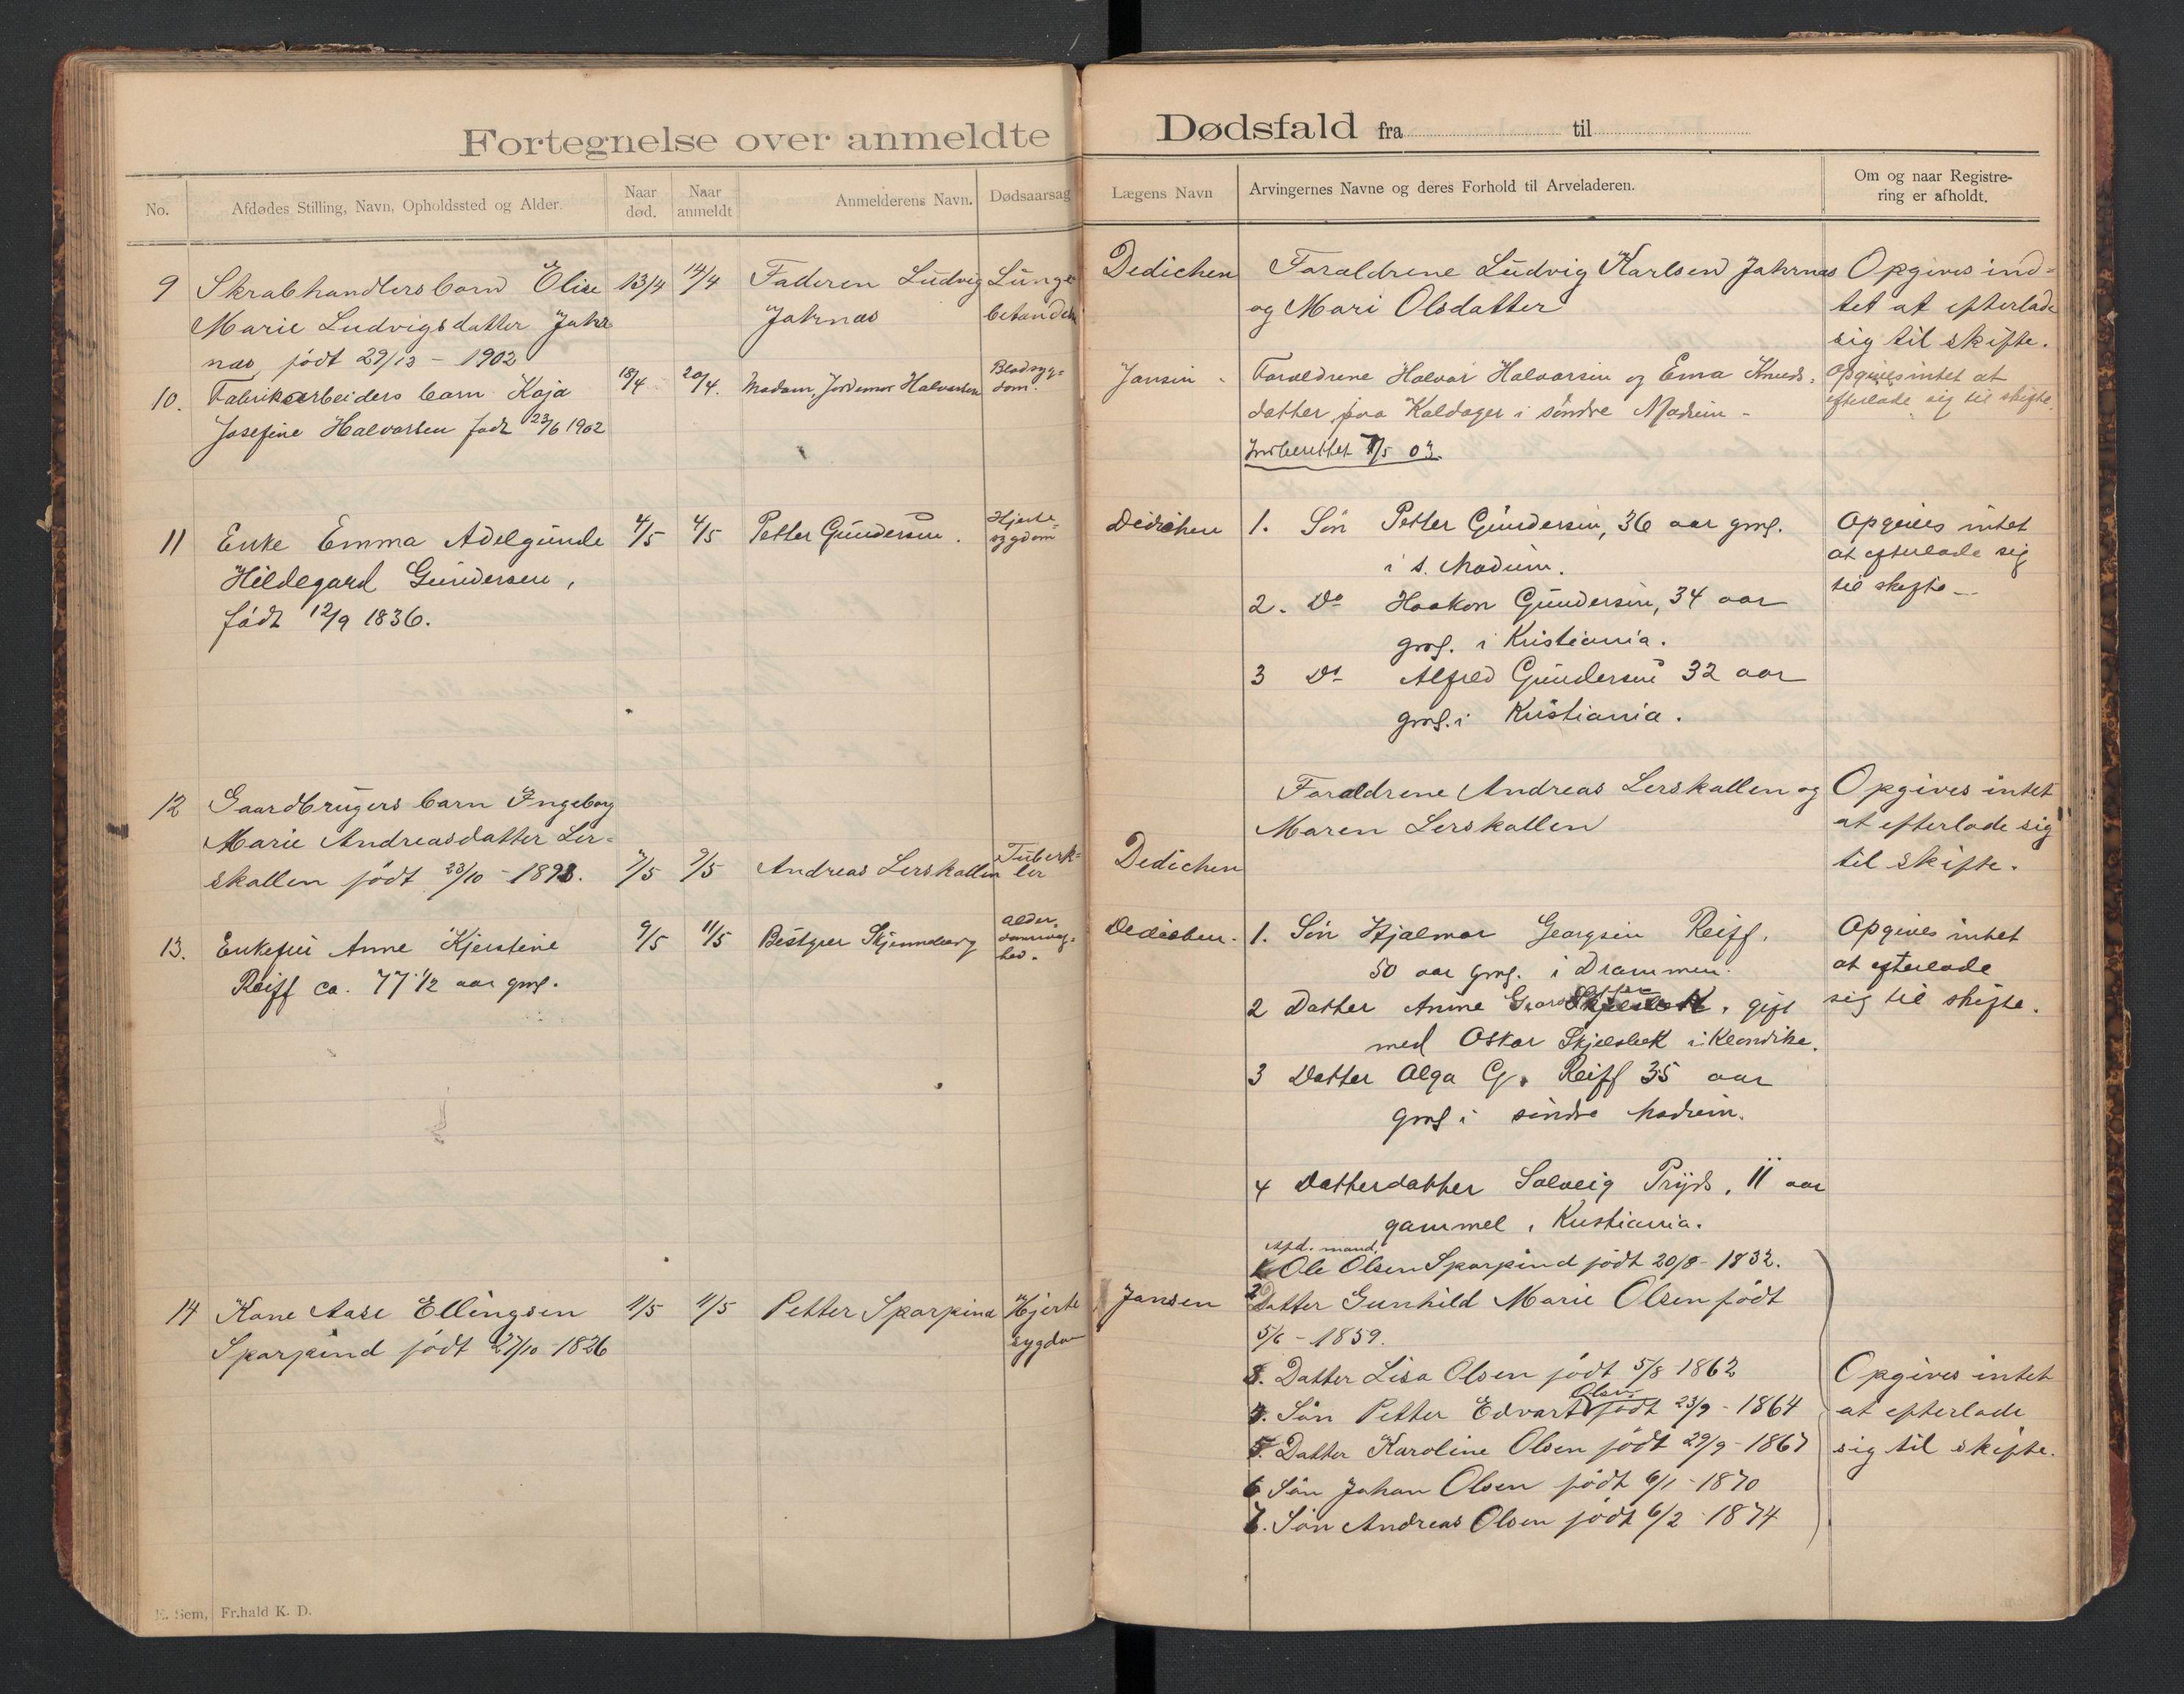 Fortegnelse over anmeldte
Dødsfald fra til
No.
Afdødes Stilling, Navn, Opholdssted og Alder.
Naar død.
Naar anmeldt
Anmelderens Navn.
Dødsaarsag
Lægens Navn
Arvingernes Navne og deres Forhold til Arveladeren.
Om og naar Registre-
ring er afholdt.
9 Skrabhandlersbarn Elise 13/4 14/4 Faderen Ludvig Lunge
Marie Ludvigsdatter Jahr Jahrnæs betændelse
næs, født 29/12 - 1902
Dedichen Forældrene Ludvig Karlsen Jahrnæs Opgives ind-
og Mari Olsdatter tet at efterlade
sig til skifte.
10. Fabrikarbeiders barn Kaja 18/4 20/4. Madam Jordemor Halvorsen Blodsyg-
dom.
Josefine Halvorsen født 23/6 1902
Jansen Forældrene Halvor Halvorsen og Ema Knuds- Opgives intet at
datter paa Kaldager i søndre Modum - efterlade sig til skifte.
Indberettet 7/5 03.
11 Enke Emma Adelgunde 4/5 4/5 Petter Gundersen. Hjerte-
sygdom
Hildegard Gundersen,
født 12/9 1836.
Dedichen 1. Søn Petter Gundersen, 36 aar gml. Opgives intet
i s. Modum. at efterlade sig
2. Do Haakon Gundersen, 34 aar til skifte -
gml. i Kristiania.
3 Do Alfred Gundersen 32 aar
gml. i Kristiania.
12 Gaardbrugers barn Ingeborg
Marie Andreasdatter Ler-
skallen født 23/10 - 1898. 7/5 9/5 Andreas Lerskallen Tuberk-
ler
Forældrene Andreas Lerskallen og Opgives intet
Maren Lerskallen at efterlade sig
Dedichen til skifte.
13. Enkefru Anne Kjerstine 9/5 11/5 Bestyrer Skjenneberg Alder-
domssvag-
hed.
Reiff ca. 77 1/2 aar gml.
Dedichen. 1. Søn Hjalmar Georgsen Reiff, Opgives intet
50 aar gml. i Drammen. at efterlade
2 Datter Anine Georgsdatter, gift sig til skifte.
med Oskar Skjelsbek i Klondike.
3 Datter Olga G. Reiff 35 aar
gml i søndre Modum.
4 Datterdatter Solveig Pryds, 11 aar
gammel, Kristiania.
14 Kone Aase Ellingsen 11/5 11/5 Petter Sparpind Hjerte
Sparpind født 27/10 1826 sygdom
Jansen
Afd. mand,
1. Ole Olsen Sparpind født 20/8 - 1832.
2 Datter Gunhild Marie Olsen født
5/6 - 1859.
3. Datter Lisa Olsen født 5/8 1862 Opgives intet
4. Søn Petter Edvart Olsen født 23/9 - 1864 at efterlade
5. Datter Karoline Olsen født 29/9 - 1867 sig til skifte.
6 Søn Johan Olsen født 6/1 - 1870
7. Søn Andreas Olsen født 6/2 - 1874
E. Sem, Fr.hald K. D.